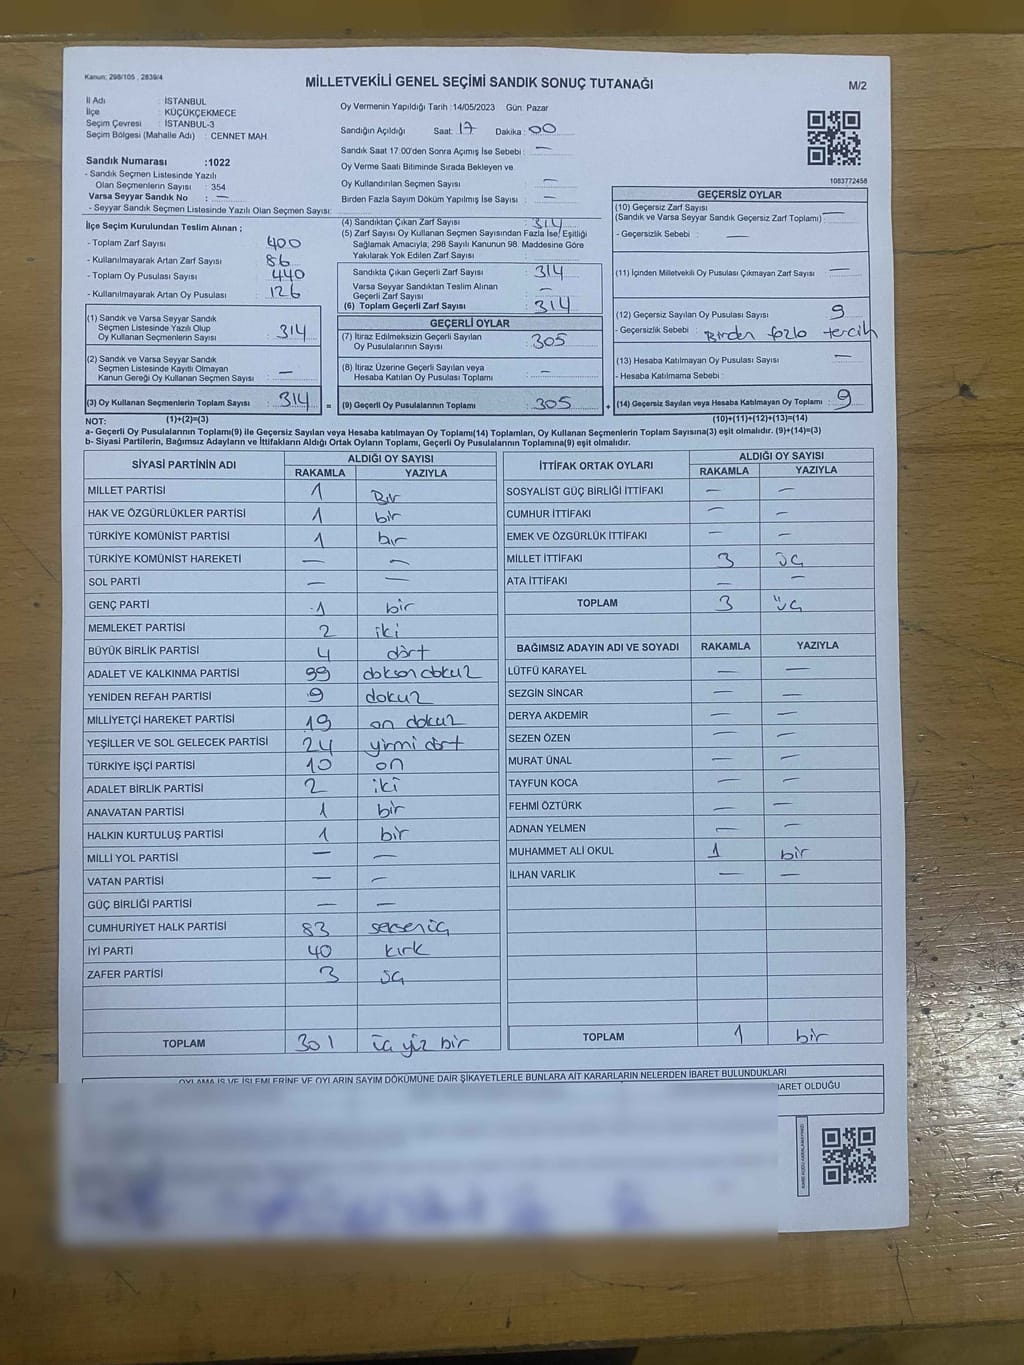 Kanun: 298/105 , 2839/4
MİLLETVEKİLİ GENEL SEÇİMİ SANDIK SONUÇ TUTANAĞI
M/2
İl Adı : İSTANBUL
İlçe : KÜÇÜKÇEKMECE
Seçim Çevresi : İSTANBUL-3
Seçim Bölgesi (Mahalle Adı) : CENNET MAH.
Sandık Numarası :1022
- Sandık Seçmen Listesinde Yazılı
Olan Seçmenlerin Sayısı : 354
Varsa Seyyar Sandık No : —
- Seyyar Sandık Seçmen Listesinde Yazılı Olan Seçmen Sayısı:
Oy Vermenin Yapıldığı Tarih :14/05/2023 Gün: Pazar
Sandığın Açıldığı Saat: 17 Dakika : 00
Sandık Saat 17:00'den Sonra Açımış İse Sebebi : —
Oy Verme Saati Bitiminde Sırada Bekleyen ve
Oy Kullandırılan Seçmen Sayısı —
Birden Fazla Sayım Döküm Yapılmış İse Sayısı : —
1083772458
İlçe Seçim Kurulundan Teslim Alınan ;
- Toplam Zarf Sayısı : 400
- Kullanılmayarak Artan Zarf Sayısı : 86
- Toplam Oy Pusulası Sayısı : 440
- Kullanılmayarak Artan Oy Pusulası : 126
(1) Sandık ve Varsa Seyyar Sandık
Seçmen Listesinde Yazılı Olup
Oy Kullanan Seçmenlerin Sayısı : 314
(2) Sandık ve Varsa Seyyar Sandık
Seçmen Listesinde Kayıtlı Olmayan
Kanun Gereği Oy Kullanan Seçmen Sayısı : —
(3) Oy Kullanan Seçmenlerin Toplam Sayısı : 314
(4) Sandıktan Çıkan Zarf Sayısı : 314
(5) Zarf Sayısı Oy Kullanan Seçmen Sayısından Fazla İse, Eşitliği
Sağlamak Amacıyla, 298 Sayılı Kanunun 98. Maddesine Göre
Yakılarak Yok Edilen Zarf Sayısı :
Sandıkta Çıkan Geçerli Zarf Sayısı : 314
Varsa Seyyar Sandıktan Teslim Alınan
Geçerli Zarf Sayısı : —
(6) Toplam Geçerli Zarf Sayısı : 314
GEÇERLİ OYLAR
(7) İtiraz Edilmeksizin Geçerli Sayılan
Oy Pusulalarının Sayısı : 305
(8) İtiraz Üzerine Geçerli Sayılan veya
Hesaba Katılan Oy Pusulası Toplamı : —
= (9) Geçerli Oy Pusulalarının Toplamı : 305 +
GEÇERSİZ OYLAR
(10) Geçersiz Zarf Sayısı
(Sandık ve Varsa Seyyar Sandık Geçersiz Zarf Toplamı) : —
- Geçersizlik Sebebi : —
(11) İçinden Milletvekili Oy Pusulası Çıkmayan Zarf Sayısı : —
(12) Geçersiz Sayılan Oy Pusulası Sayısı : 9
- Geçersizlik Sebebi : Birden fazla tercih
(13) Hesaba Katılmayan Oy Pusulası Sayısı : —
- Hesaba Katılmama Sebebi :
(14) Geçersiz Sayılan veya Hesaba Katılmayan Oy Toplamı : 9
NOT: (1)+(2)=(3) (10)+(11)+(12)+(13)=(14)
a- Geçerli Oy Pusulalarının Toplamı(9) ile Geçersiz Sayılan veya Hesaba Katılmayan Oy Toplamı(14) Toplamları, Oy Kullanan Seçmenlerin Toplam Sayısına(3) eşit olmalıdır. (9)+(14)=(3)
b- Siyasi Partilerin, Bağımsız Adayların ve İttifakların Aldığı Ortak Oyların Toplamı, Geçerli Oy Pusulalarının Toplamına(9) eşit olmalıdır.
SİYASİ PARTİNİN ADI ALDIĞI OY SAYISI
RAKAMLA YAZIYLA
MİLLET PARTİSİ 1 Bir
HAK VE ÖZGÜRLÜKLER PARTİSİ 1 bir
TÜRKİYE KOMÜNİST PARTİSİ 1 bir
TÜRKİYE KOMÜNİST HAREKETİ — —
SOL PARTİ — —
GENÇ PARTİ 1 bir
MEMLEKET PARTİSİ 2 iki
BÜYÜK BİRLİK PARTİSİ 4 dört
ADALET VE KALKINMA PARTİSİ 99 doksan dokuz
YENİDEN REFAH PARTİSİ 9 dokuz
MİLLİYETÇİ HAREKET PARTİSİ 19 on dokuz
YEŞİLLER VE SOL GELECEK PARTİSİ 24 yirmi dört
TÜRKİYE İŞÇİ PARTİSİ 10 on
ADALET BİRLİK PARTİSİ 2 iki
ANAVATAN PARTİSİ 1 bir
HALKIN KURTULUŞ PARTİSİ 1 bir
MİLLİ YOL PARTİSİ — —
VATAN PARTİSİ — —
GÜÇ BİRLİĞİ PARTİSİ — —
CUMHURİYET HALK PARTİSİ 83 seksenüç
İYİ PARTİ 40 kırk
ZAFER PARTİSİ 3 üç
TOPLAM 301 üç yüz bir
İTTİFAK ORTAK OYLARI ALDIĞI OY SAYISI
RAKAMLA YAZIYLA
SOSYALİST GÜÇ BİRLİĞİ İTTİFAKI — —
CUMHUR İTTİFAKI — —
EMEK VE ÖZGÜRLÜK İTTİFAKI — —
MİLLET İTTİFAKI 3 üç
ATA İTTİFAKI — —
TOPLAM 3 üç
BAĞIMSIZ ADAYIN ADI VE SOYADI RAKAMLA YAZIYLA
LÜTFÜ KARAYEL — —
SEZGİN SİNCAR — —
DERYA AKDEMİR — —
SEZEN ÖZEN — —
MURAT ÜNAL — —
TAYFUN KOCA — —
FEHMİ ÖZTÜRK — —
ADNAN YELMEN — —
MUHAMMET ALİ OKUL 1 bir
İLHAN VARLIK — —
TOPLAM 1 bir
OYLAMA İŞ VE İŞLEMLERİNE VE OYLARIN SAYIM DÖKÜMÜNE DAİR ŞİKAYETLERLE BUNLARA AİT KARARLARIN NELERDEN İBARET BULUNDUKLARI
İBARET OLDUĞU